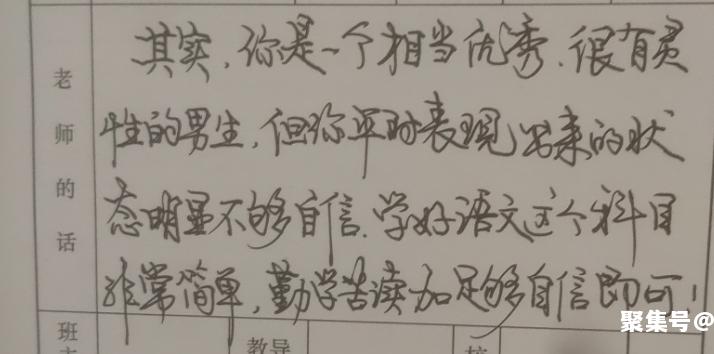 老师的话
其实,你是一个相当优秀、很有灵
性的男生,但你平时表现出来的状
态明显不够自信.学好语文这个科目
非常简单,勤学苦读加足够自信即可!
班
教导
聚集号@